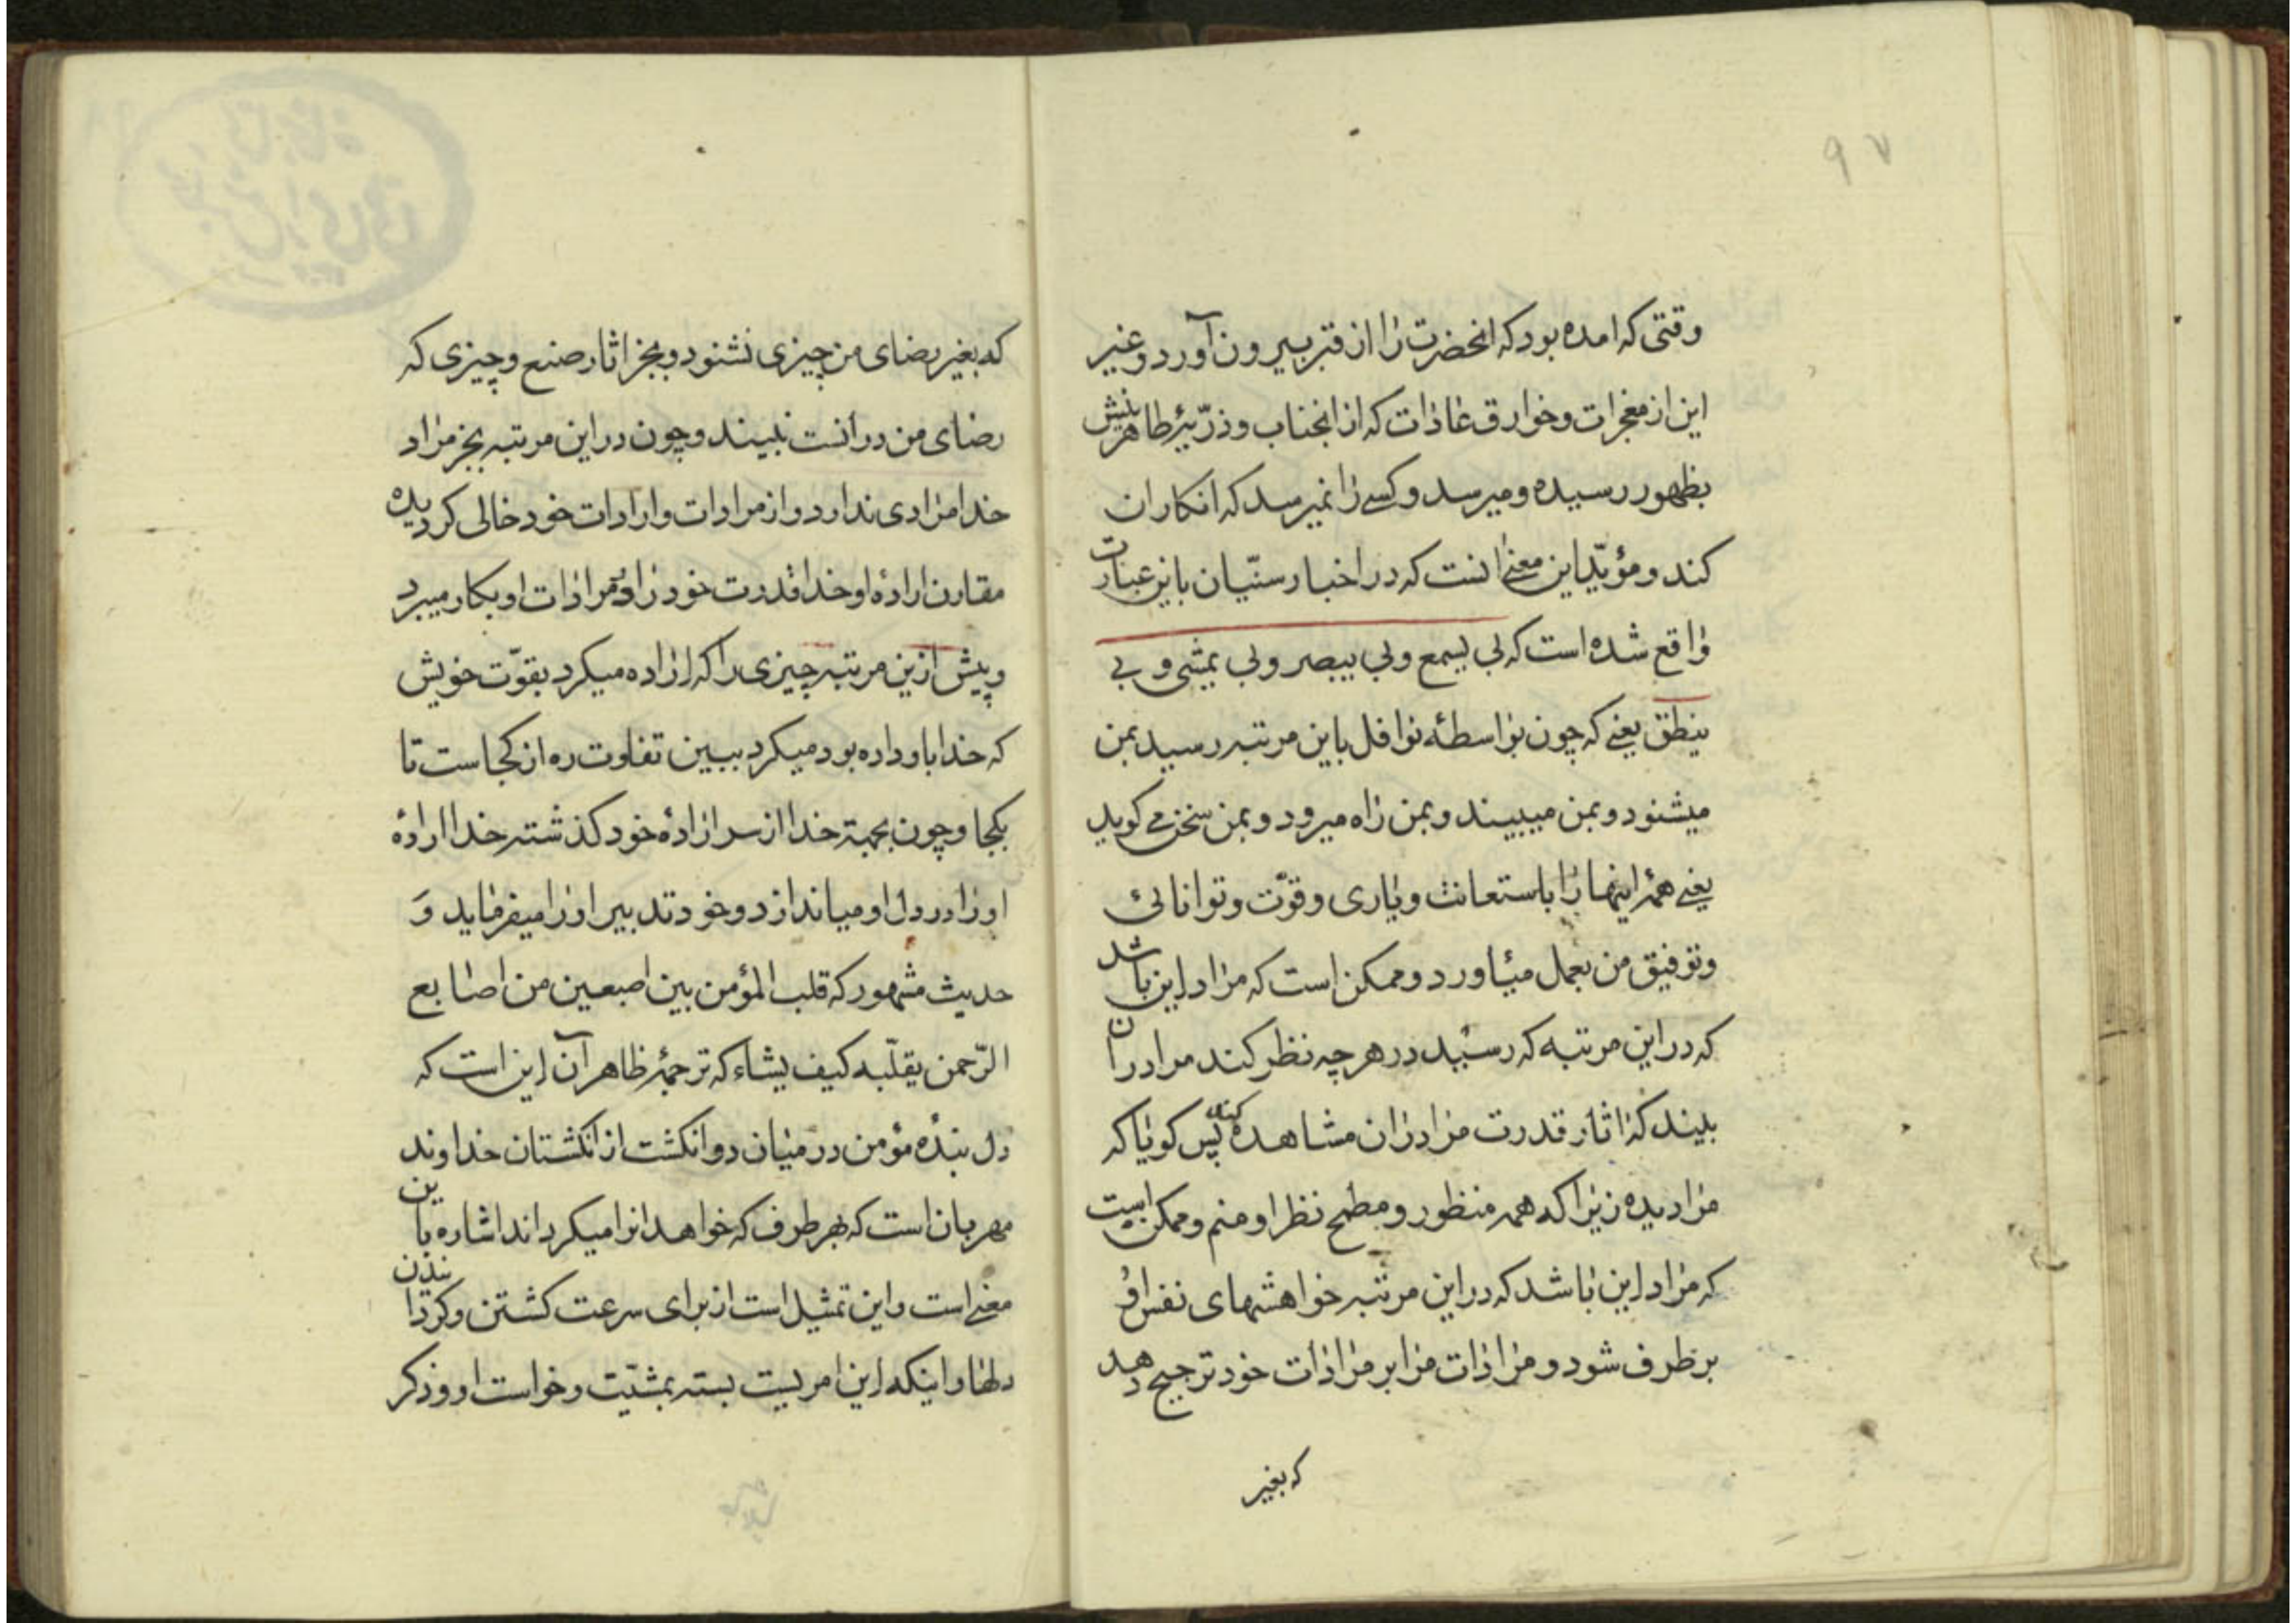 ۹۷
وقتی که امده بود که انحضرت را از قبر بیرون آورد و غیر
این از معجزات و خوارق عادات که از انجناب و ذرّیّهٔ طاهرینش
بظهور رسیده و میرسد و کسے را نمیرسد که انکار ان
کند و مؤیّد این معنے انست که در اخبار سنّیان باین عبارت
واقع شده است که بی یسمع و بی یبصر و بی یمشی و بی
ینطق یعنے که چون بواسطهٔ نوافل باین مرتبه رسید بمن
میشنود و بمن میبیند و بمن راه میرود و بمن سخن مے کوید
یعنے همهٔ اینها را باستعانت و یاری و قوّت و توانائی
و توفیق من بعمل میاورد و ممکن است که مراد این باشد
که در این مرتبه که رسید در هر چه نظر کند مرا در ان
بیند که اثار قدرت مرا در ان مشاهده کند پس کویا که
مرا دیده زیرا که همه منظور و مطمح نظر او منم و ممکن است
که مراد این باشد که در این مرتبه خواهشهای نفس او
برطرف شود و مرادات مرا بر مرادات خود ترجیح دهد
که بغیر
که بغیر رضای من چیزی نشنود و بجز اثار صنع و چیزی که
رضای من در انست نبیند و چون در این مرتبه بجز مراد
خدا مرادی ندارد و از مرادات و ارادات خود خالی کردیده
مقارن ارادهٔ او خدا قدرت خود را در مرادات او بکار میبرد
و پیش ازین مرتبه چیزی را که اراده میکرد بقوّت خویش
که خدا باو داده بود میکرد ببین تفاوت ره از کجاست تا
بکجا و چون بجهة خدا از سر ارادهٔ خود کذشته خدا ارادهٔ
او را در دل او میاندازد و خود تدبیر او را میفرماید وَ
حدیث مشهور که قلب المؤمن بین اصبعین من اصابع
الرّحمن یقلّبه کیف یشاء که ترجمهٔ ظاهر آن این است که
دل بندهٔ مؤمن در میان دو انکشت از انکشتان خداوند
مهربان است که بهر طرف که خواهد انرا میکرداند اشاره باین
معنے است و این تمثیل است از برای سرعت کشتن و کردانیدن
دلها و اینکه این امریست بسته بمشیّت و خواست او و ذکر